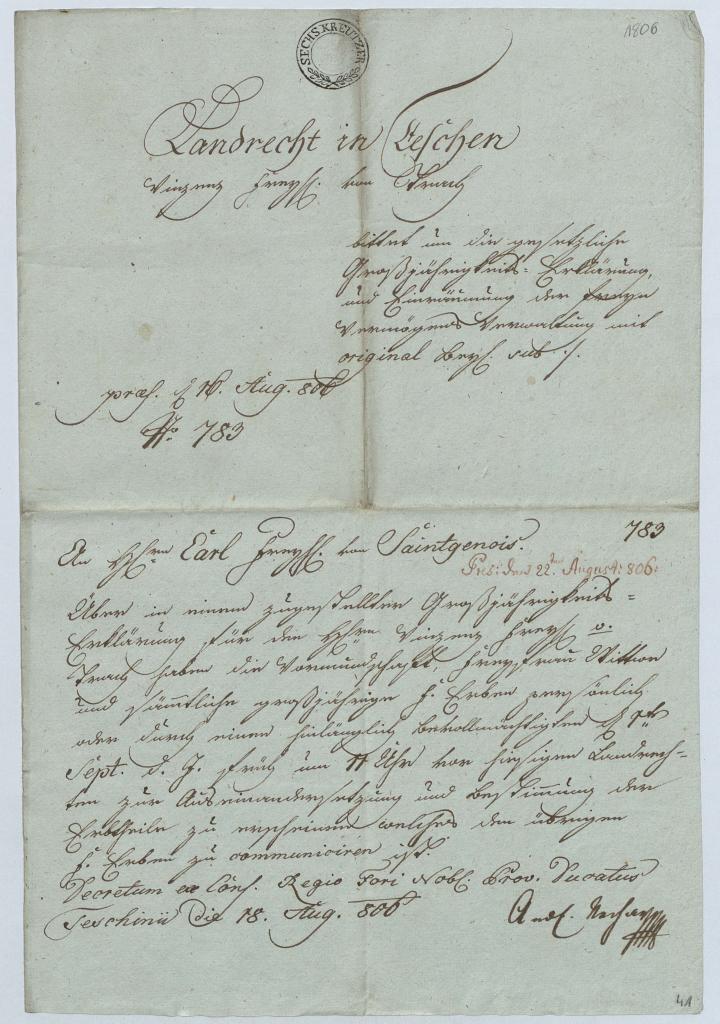 1806
SECHS KREUTZER
Landrecht in Teschen
Vinzenz Freyh. von Trach
bittet um die gesetzliche
Großjährigkeits-Erklärung,
und Einräumung der freyen
Vermögens Verwaltung mit
original Beyl. sub ./.
præs. 16. Aug. 806
No 783
783
An H̄rn Carl Freyh. von Saintgenois.
Pres: den 22ten August: 806:
Über in einem zugestellter Großjährigkeits=
Erklärung für den H̄rn Vinzenz Freyh. v.
Trach haben die Vormundschaft, Freyfrau Wittwe
und sämmtliche großjährige H. Erben persönlich
oder durch einen hinlänglich bevollmächtigten
Sept. d. J. früh um 11 Uhr vor hiesigen Landrech=
ten zur Auseinandersetzung und Bestimmung der
Erbtheile zu erscheinen welches den übrigen
H. Erben zu communiciren ist.
Decretum ex Cons. Regio Fori Nobl. Prov. Ducatus
Teschinii die 18. Aug. 806